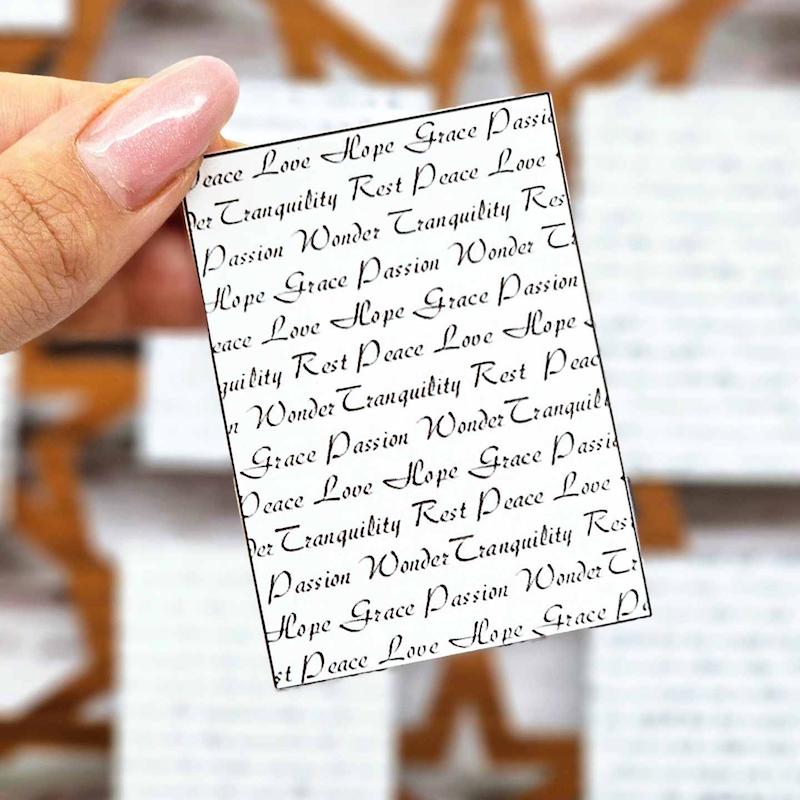 Peace Love Hope Grace Passio
der Tranquility Rest Peace Love
Passion Wonder Tranquility Res
Hope Grace Passion Wonder T
eace Love Hope Grace Passion
quility Rest Peace Love Hope
n Wonder Tranquility Rest Peac
Grace Passion Wonder Tranquil
Peace Love Hope Grace Passio
der Tranquility Rest Peace Love
Passion Wonder Tranquility Res
Hope Grace Passion Wonder Tr
st Peace Love Hope Grace Pa